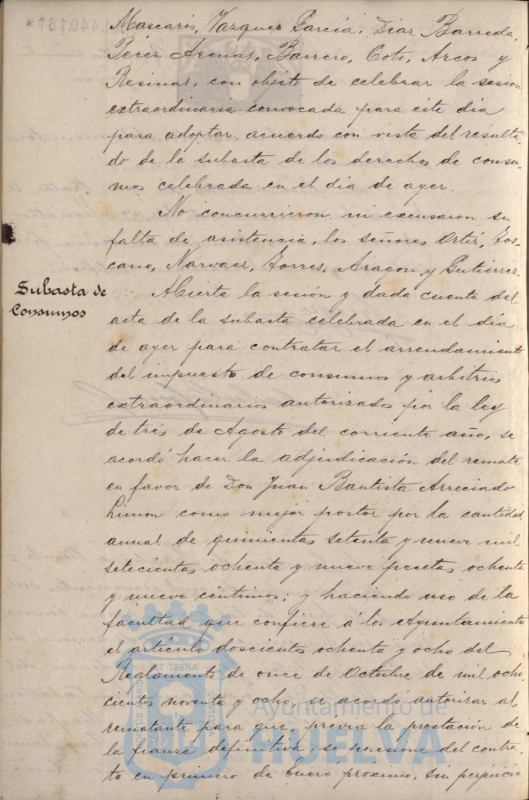 Mascarós, Vazquez García, Diaz Barreda,
Pérez Arenas, Barrero, Coto, Arcos y
Resinas, con objeto de celebrar la sesión
extraordinaria convocada para éste dia
para adoptar acuerdo con vista del resulta-
do de la subasta de los derechos de consu-
mos celebrada en el dia de ayer.
No concurrieron ni excusaron su
falta de asistencia, los señores Ortiz, Tos-
cano, Narvaez, Torres, Aragon y Gutierrez.
Subasta de
Consumos
Abierta la sesión y dada cuenta del
acta de la subasta celebrada en el dia
de ayer para contratar el arrendamiento
del impuesto de consumos y arbitrios
extraordinarios autorizados por la ley
de tres de Agosto del corriente año, se
acordó hacer la adjudicación del remate
en favor de Don Juan Bautista Arreciado
Limon como mejor postor por la cantidad
anual de quinientas setenta y nueve mil
setecientas ochenta y nueve pesetas ochenta
y nueve céntimos; y haciendo uso de la
facultad que confiere á los Ayuntamientos
el artículo doscientos ochenta y ocho del
Reglamento de once de Octubre de mil ocho-
cientos noventa y ocho, se acordó autorizar al
rematante para que, previa la prestación de
la fianza definitiva, se posesione del contra-
to en primero de Enero proximo, sin perjuicio
Ayuntamiento de
HUELVA